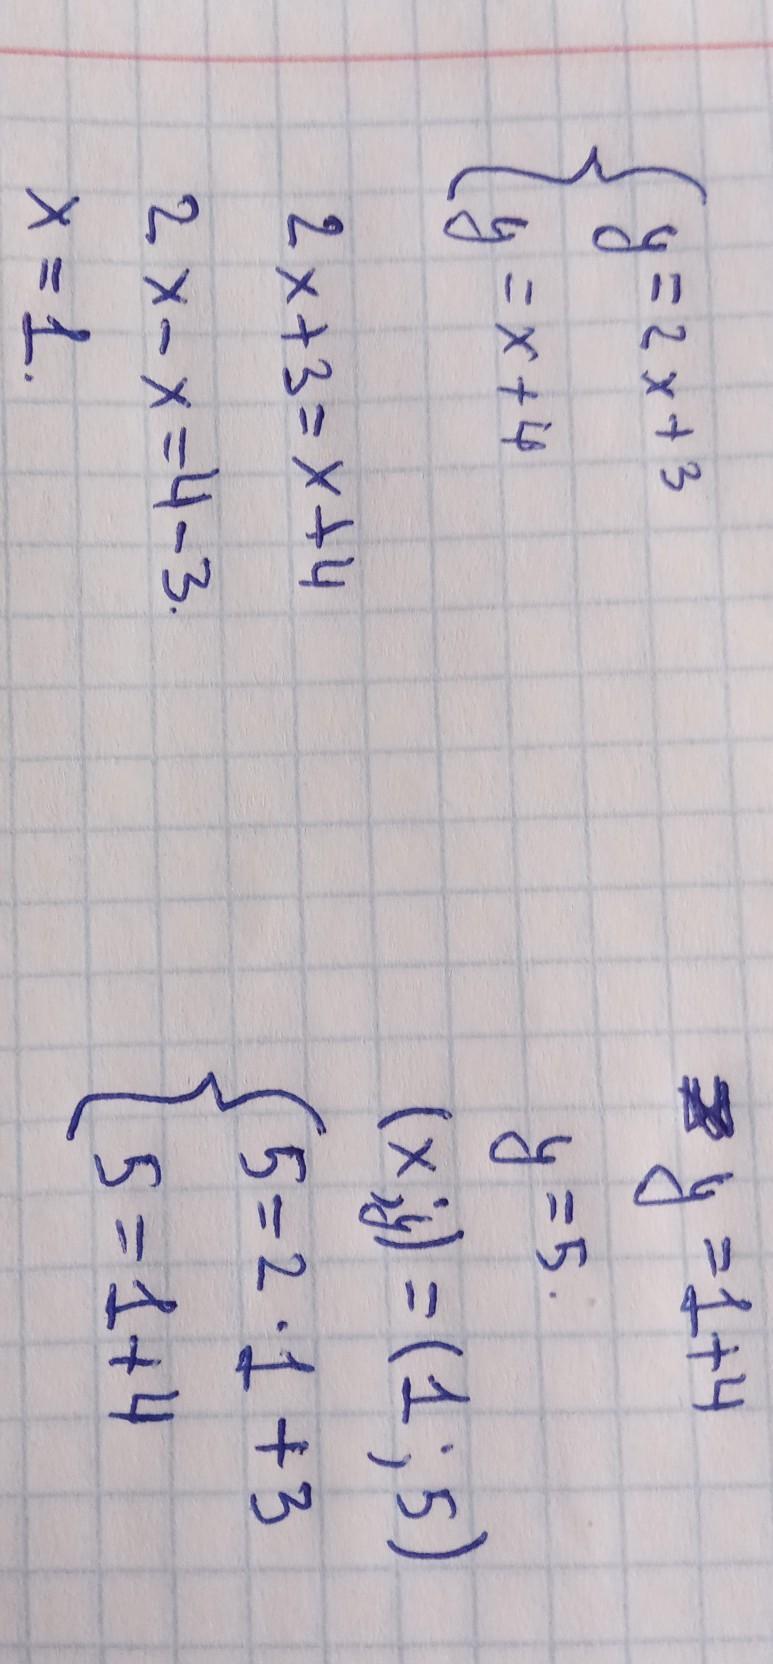 y = 2x + 3
y = x + 4
2x + 3 = x + 4
2x - x = 4 - 3.
x = 1.
y = 1 + 4
y = 5.
(x; y) = (1; 5)
5 = 2 · 1 + 3
5 = 1 + 4